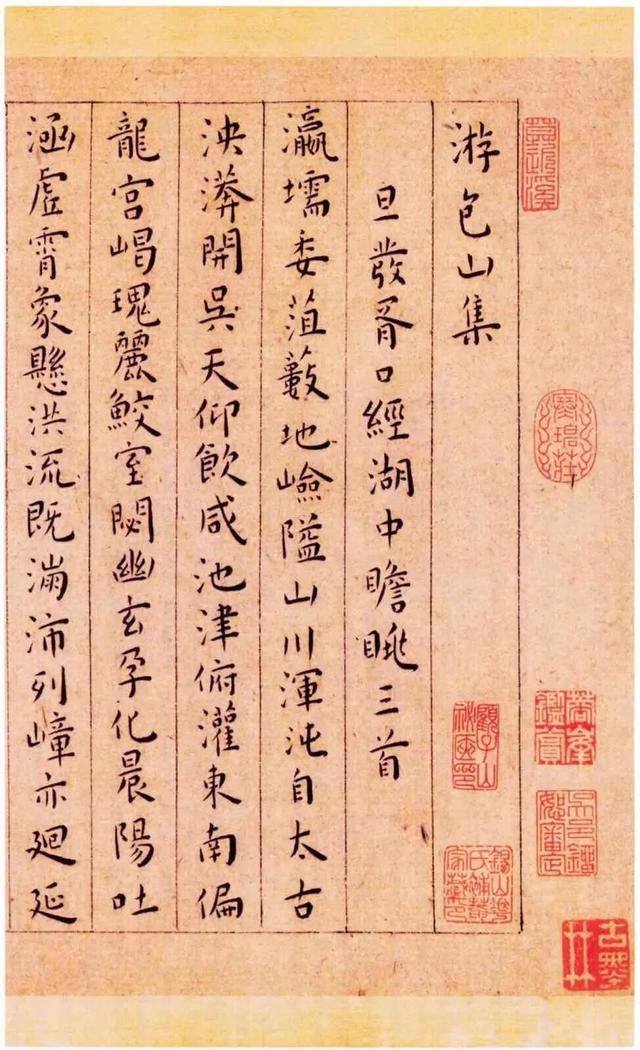 游包山集
旦發胥口經湖中瞻眺三首
瀛壖委菹藪地嶮隘山川渾沌自太古
泱漭開吳天仰飲咸池津俯灌東南偏
龍宮嵑瑰麗鮫室閟幽玄孕化晨陽吐
涵虛霄象懸洪流既滿沛列嶂亦廻延